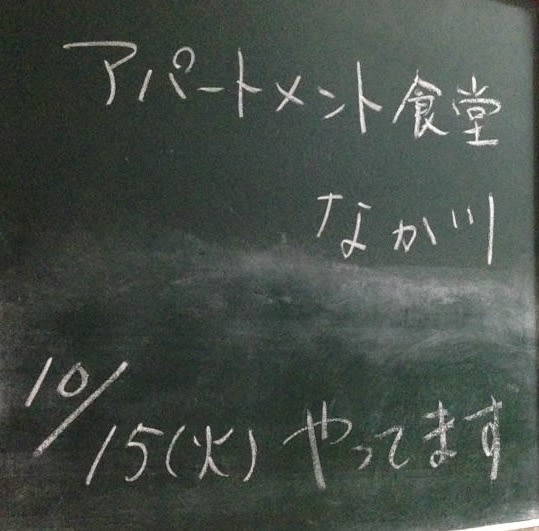 アパートメント食堂
なか川
10/15(火) やってます